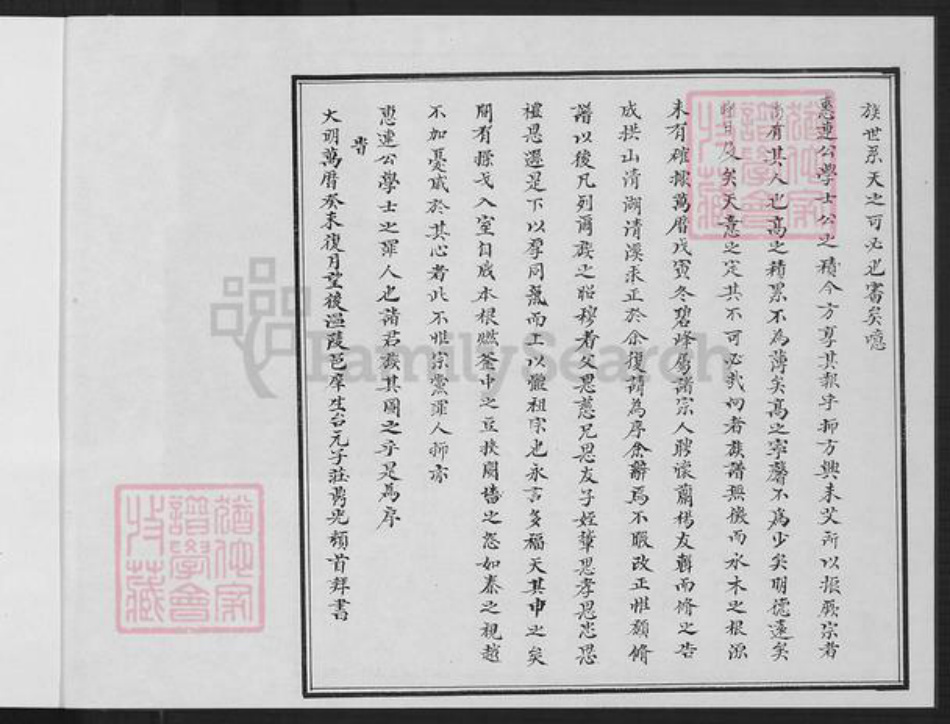 族世系天之可必也審矣噫
惠連公學士公之積今方享其報乎抑方興未艾所以振厥宗者
尚有其人也高之積累不為薄矣高之寧馨不為少矣明德遠矣
及矣天意之定其不可必哉向者族譜無徵而水木之根源
未有確據萬曆戊寅冬碧峰屬諸宗人聘懷蘭楊友輯而脩之告
成拱山清湖清溪求正於余復請為序余辭焉不暇改正惟願脩
譜以後凡列爾族之昭穆者父思慈兄思友子姪輩思孝思忠思
禮思遜是下以孚同氣而上以慰祖宗也永言多福天其申之矣
間有操戈入室自戕本根燃釜中之豆挾鬩墻之忿如秦之視越
不加憂戚於其心者此不惟宗黨罪人抑亦
昔
惠連公學士之罪人也諸君族其圖之乎是為序
大明萬曆癸未復月望後溫陵邑庠生台元子莊 光頓首拜書
猶他家譜學會收藏
猶他家譜學會收藏
FamilySearch